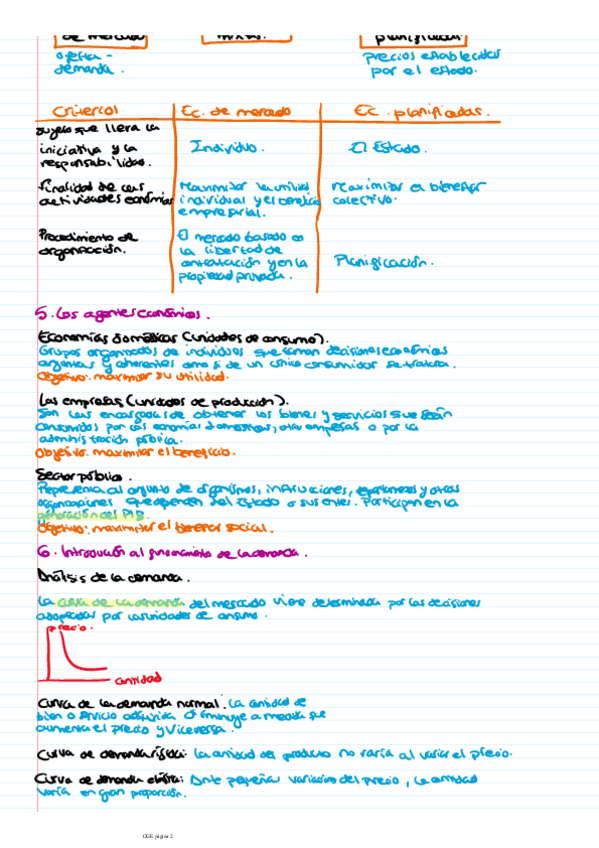 de mercado mixtas. planificadas
oferta - precios establecidos
demanda. por el estado.
Criterios Ec. de mercado Ec. planificadas.
Sujeto que lleva la
iniciativa y la Individuo. El Estado.
responsabilidad.
Finalidad de las Maximizar la utilidad Maximizar el bienestar
actividades económicas individual y el beneficio colectivo.
empresarial.
Procedimiento de El mercado basado en
organización. la libertad de
contratación y en la Planificación.
propiedad privada.
5. Los agentes económicos.
Economías domésticas (unidades de consumo).
Grupos organizados de individuos que toman decisiones económicas
conjuntas y coherentes como si de un único consumidor se tratara.
Objetivo: maximizar su utilidad.
Las empresas (unidades de producción).
Son las encargadas de obtener los bienes y servicios que serán
consumidos por las economías domésticas, otras empresas o por la
administración pública.
Objetivo: maximizar el beneficio.
Sector público.
Representa al conjunto de organismos, instituciones, y otras
organizaciones que dependen del Estado o sus entes. Participan en la
generación del PIB.
Objetivo: maximizar el bienestar social.
6. Introducción al funcionamiento de la demanda.
Análisis de la demanda.
La curva de la demanda del mercado viene determinada por las decisiones
adoptadas por las unidades de consumo.
precio.
cantidad
Curva de la demanda normal. La cantidad de
bien o servicio adquirida disminuye a medida que
aumenta el precio y viceversa.
Curva de demanda rígida: La cantidad del producto no varía al variar el precio.
Curva de demanda elástica: Ante pequeñas variaciones del precio, la cantidad
varía en gran proporción.
OGE página 2